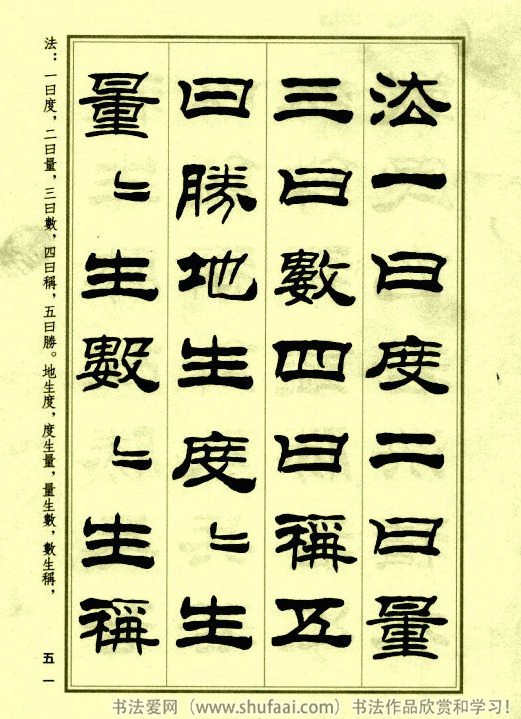 法一曰度二曰量
三曰數四曰稱五
曰勝地生度〻生
量〻生數〻生稱
法：一曰度，二曰量，三曰數，四曰稱，五曰勝。地生度，度生量，量生數，數生稱，
五一
书法爱网（www.shufaai.com）书法作品欣赏和学习！